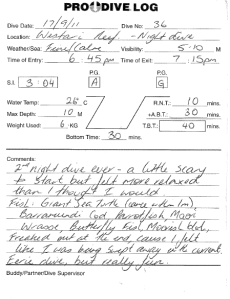 PRO DIVE LOG
Dive Date: 17/9/11 Dive No: 36
Location: Reef - Night dive
Weather/Sea: Visibility: 5-10 M
Time of Entry: 6:45pm Time of Exit: 7:15pm
P.G. P.G.
S.I. 3:04 A G
Water Temp: 26°C R.N.T.: 10 mins.
Max Depth: 10 M +A.B.T.: 30 mins.
Weight Used: 6 KG T.B.T.: 40 mins.
Bottom Time: 30 mins.
Comments:
2nd night dive ever - a little scary
to start but felt more relaxed
than I thought I would
Fish: Giant Sea Turtle (came within 1m)
Barramundi Cod, Parrotfish, Moon
Wrasse, Butterfly Fish, Moorish Idol,
Freaked out at the end, cause I felt
like I was being swept away in the current.
Eerie dive, but really fun.
Buddy/Partner/Dive Supervisor